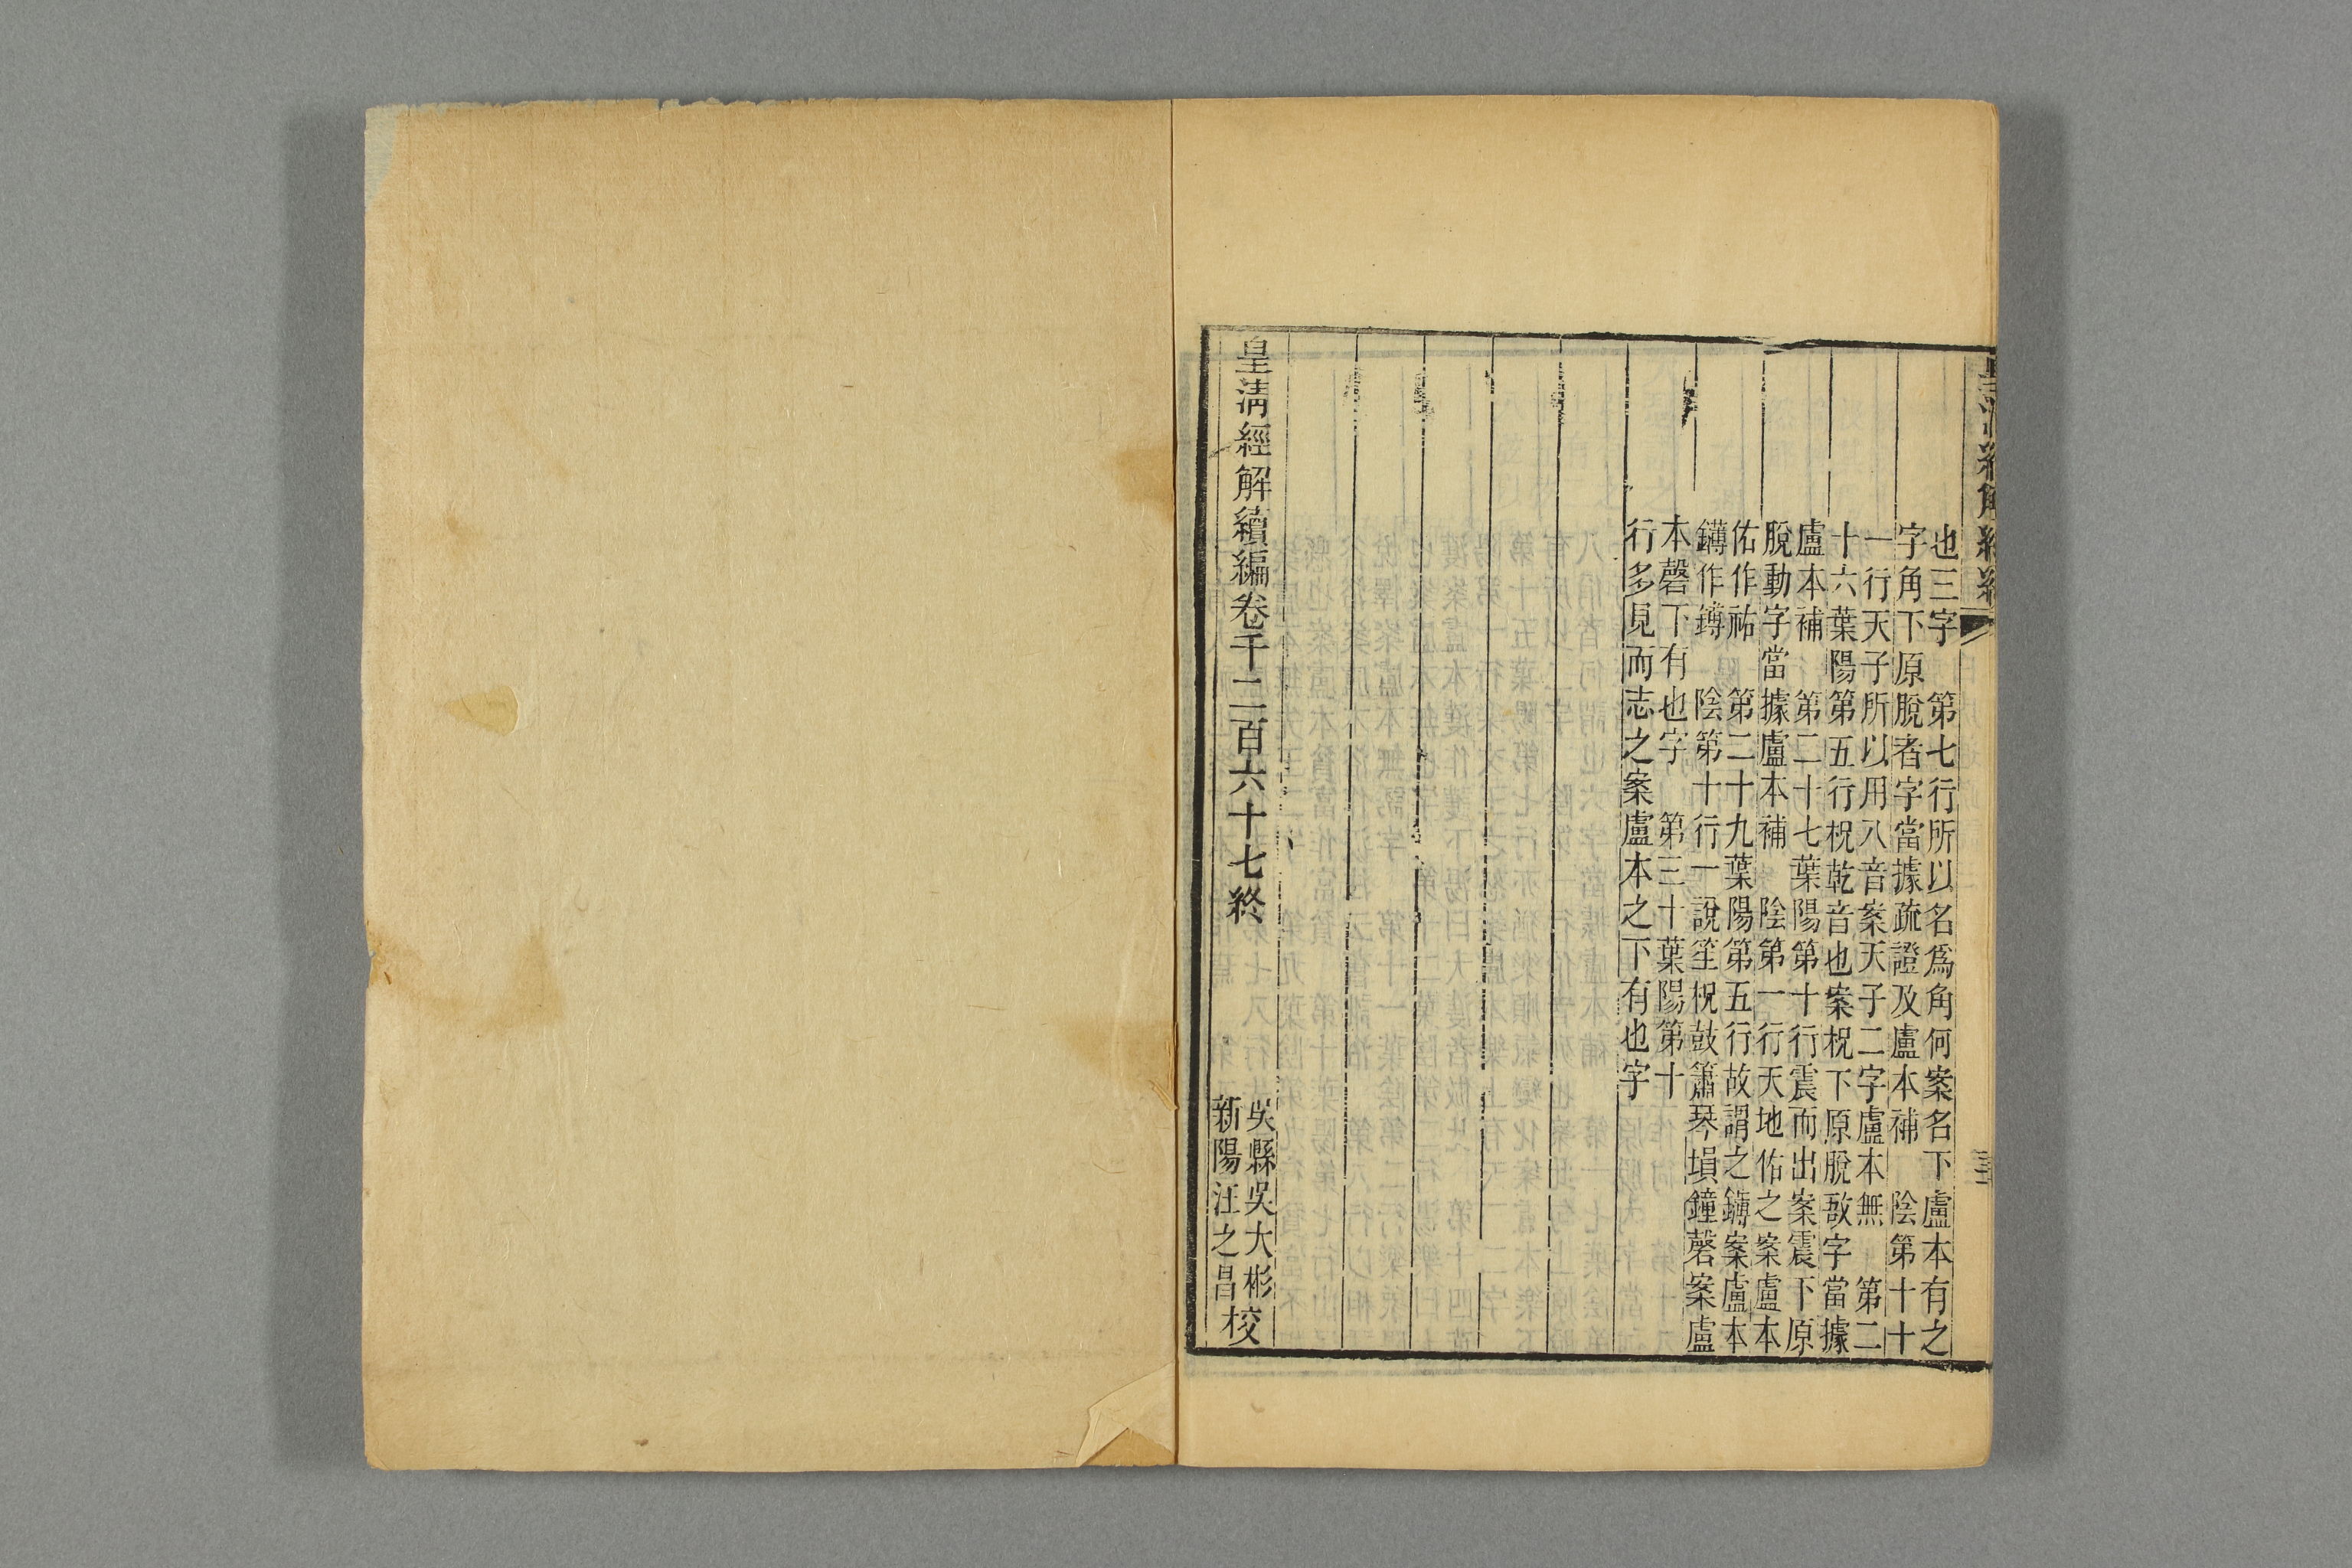 皇清經解續編
也三字　第七行所以名爲角何案名下盧本有之
字角下原脫者字當據疏證及盧本補　陰第十十
一行天子所以用八音案天子二字盧本無　第二
十六葉陽第五行柷乾音也案柷下原脫敔字當據
盧本補　第二十七葉陽第十行震而出案震下原
脫動字當據盧本補　陰第一行天地佑之案盧本
佑作祐　第二十九葉陽第五行故謂之鏄案盧本
鏄作鎛　陰第十行一說笙柷鼓簫琴塤鐘磬案盧
本磬下有也字　第三十葉陽第十
行多見而志之案盧本之下有也字
皇清經解續編卷千二百六十七終
吳縣吳大彬
新陽汪之昌
校